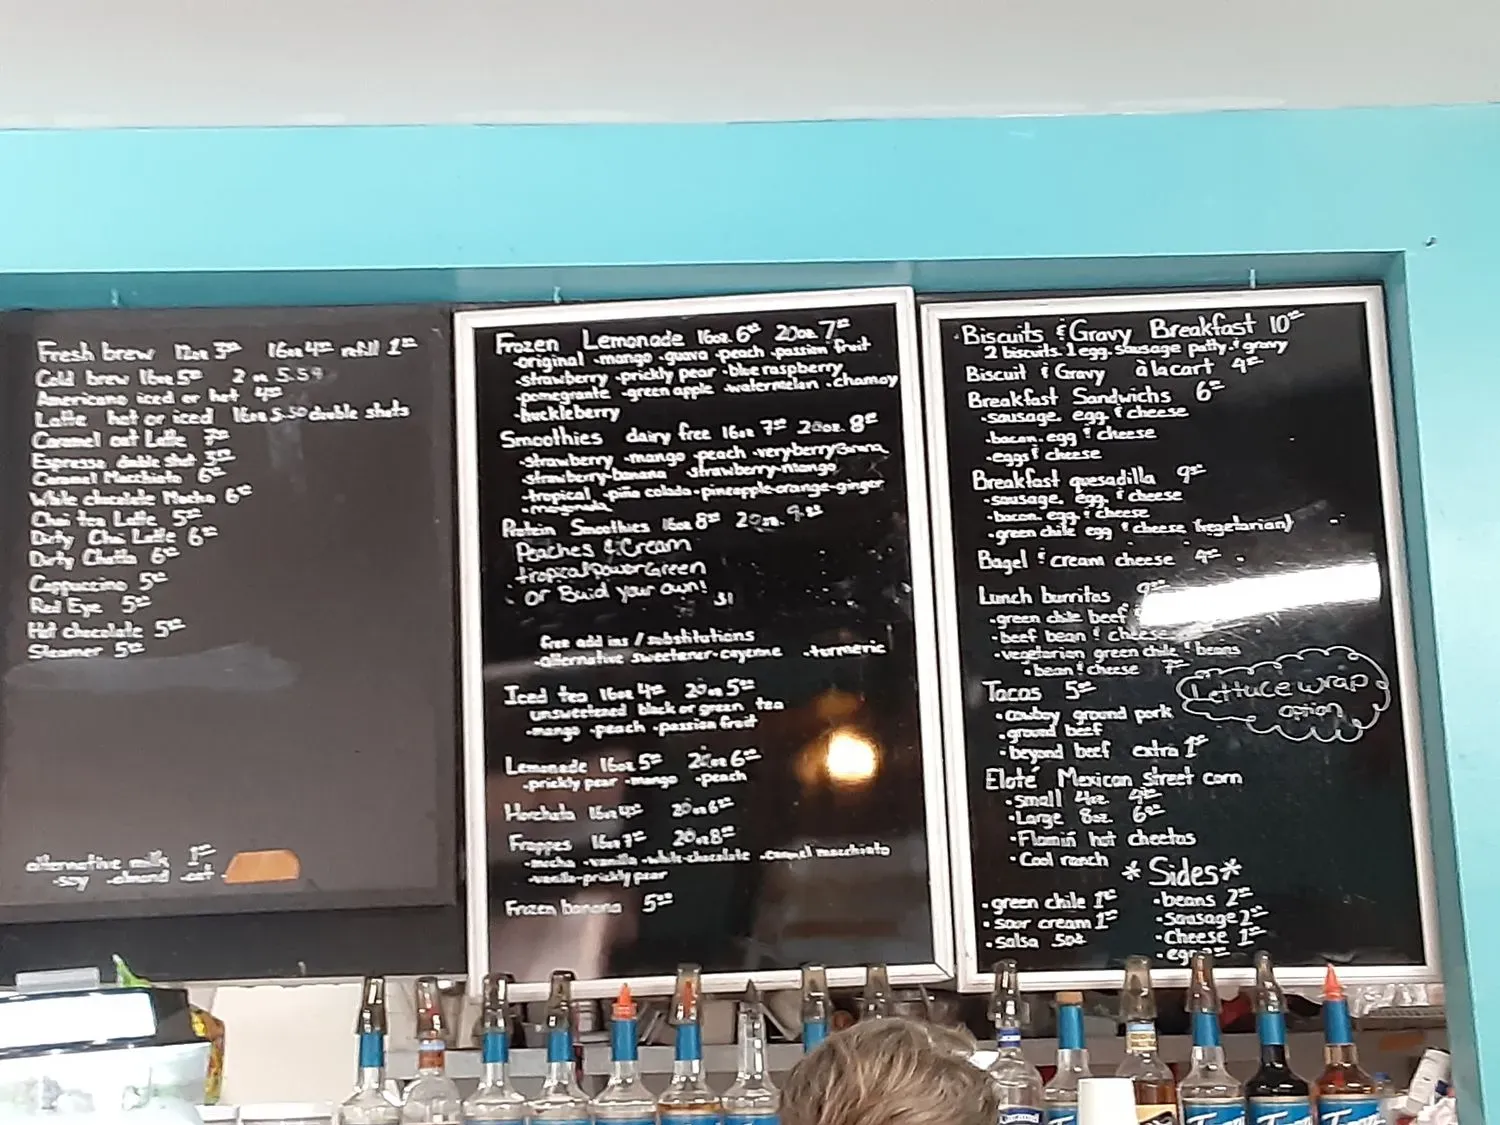 Fresh brew 12oz 3⁰⁰ 16oz 4⁰⁰ refill 1⁰⁰
Cold brew 16oz 5⁰⁰ 2 oz 5.59
Americano iced or hot 4⁰⁰
Latte hot or iced 16oz 5.50 double shots
Caramel oat Latte 7⁰⁰
Espresso double shot 3⁰⁰
Caramel Macchiato 6⁰⁰
White chocolate Mocha 6⁰⁰
Chai tea Latte 5⁰⁰
Dirty Chai Latte 6⁰⁰
Dirty Chatta 6⁰⁰
Cappuccino 5⁰⁰
Red Eye 5⁰⁰
Hot chocolate 5⁰⁰
Steamer 5⁰⁰
alternative milks 1⁰⁰
·soy ·almond ·oat
Frozen Lemonade 16oz 6⁰⁰ 20oz 7⁰⁰
·original ·mango ·guava ·peach ·passion fruit
·strawberry ·prickly pear ·blue raspberry
·pomegrante ·green apple ·watermelan ·chamoy
·huckleberry
Smoothies dairy free 16oz 7⁰⁰ 20oz 8⁰⁰
·strawberry ·mango ·peach ·veryberryBanana
·strawberry-banana strawberry-mango
·tropical ·piña colada ·pineapple-orange-ginger
·mangonada
Protein Smoothies 16oz 8⁰⁰ 20oz 9.00
Peaches & Cream
tropical Power Green
or Buid your own!
$1
free add ins / substitutions
·alternative sweetener ·cayenne ·turmeric
Iced tea 16oz 4⁰⁰ 20oz 5⁰⁰
unsweetened black or green tea
·mango ·peach ·passion fruit
Lemonade 16oz 5⁰⁰ 20oz 6⁰⁰
·prickly pear ·mango ·peach
Horchata 16oz 4⁰⁰ 20oz 6⁰⁰
Frappes 16oz 7⁰⁰ 20oz 8⁰⁰
·mocha ·vanilla ·white-chocolate ·caramel macchiato
·vanilla-prickly pear
Frozen banana 5⁰⁰
·Biscuits & Gravy Breakfast 10⁰⁰
2 biscuits. 1 egg. sausage patty. & gravy
Biscuit & Gravy à la cart 4⁰⁰
Breakfast Sandwichs 6⁰⁰
·sausage. egg. & cheese
·bacon. egg & cheese
·eggs & cheese
Breakfast quesadilla 9⁰⁰
·sausage. egg. & cheese
·bacon. egg. & cheese
·green chile egg & cheese (vegetarian)
Bagel & cream cheese 4⁰⁰
Lunch burritos 9⁰⁰
·green chile beef &
·beef bean & cheese
·vegetarian green chile & beans
·bean & cheese 7⁰⁰
Lettuce wrap
option
Tacos 5⁰⁰
·cowboy ground pork
·ground beef
·beyond beef extra 1⁰⁰
Eloté Mexican street corn
·Small 4oz 4⁰⁰
·Large 8oz 6⁰⁰
·Flamin hot cheetos
·Cool ranch
*Sides*
·green chile 1⁰⁰ ·beans 2⁰⁰
·sour cream 1⁰⁰ ·sausage 2⁰⁰
·salsa .50¢ ·cheese 1⁰⁰
·egg